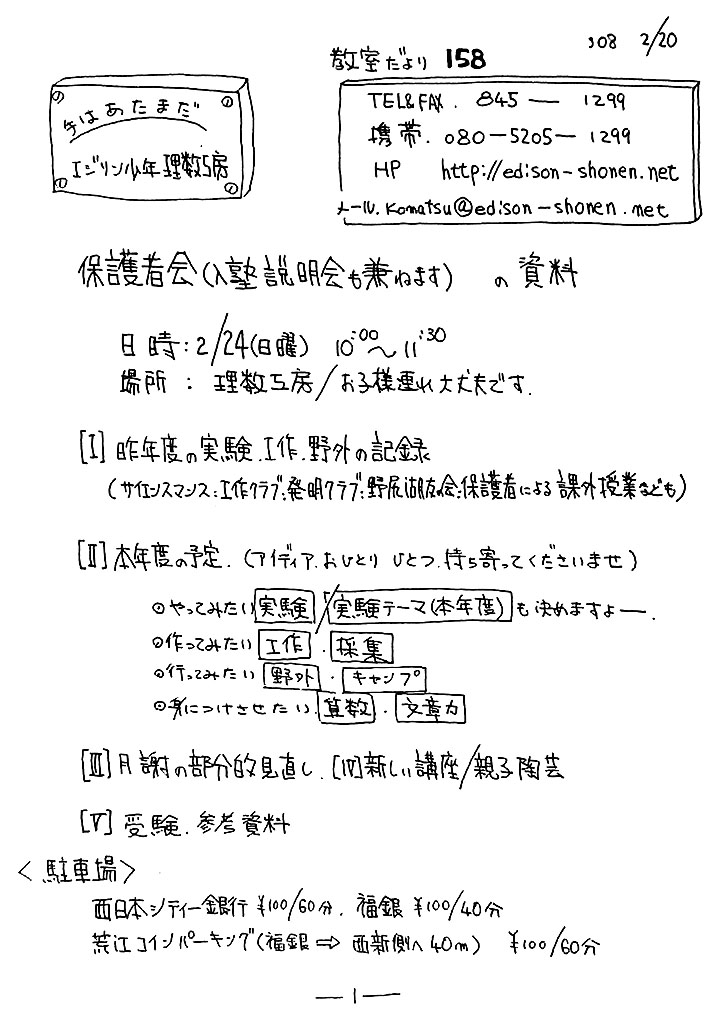 '08 2/20
教室だより 158
手はあたまだ
エジソン少年理数工房
TEL&FAX. 845— 1299
携帯. 080—5205— 1299
HP http://edison-shonen.net
メール. Komatsu@edison-shonen.net
保護者会(入塾説明会も兼ねます) の資料
日時:2/24(日曜) 10:00〜11:30
場所 : 理数工房/お子様連れ大丈夫です.
[I] 昨年度の実験.工作.野外の記録
(サイエンスマンス:工作クラブ:発明クラブ:野尻湖友の会:保護者による課外授業なども)
[II] 本年度の予定. (アイディア.おひとり ひとつ.持ち寄ってくださいませ)
◦やってみたい 実験/「実験テーマ(本年度) も決めますよー.
◦作ってみたい 工作 . 採集
◦行ってみたい 野外 . キャンプ
◦身につけさせたい. 算数 . 文章力
[III] 月謝の部分的見直し. [IV] 新しい講座/親子陶芸
[V] 受験.参考資料
<駐車場>
西日本シティー銀行 ¥100/60分. 福銀 ¥100/40分
荒江コインパーキング(福銀 ⇨ 西新側へ40m) ¥100/60分
—1—